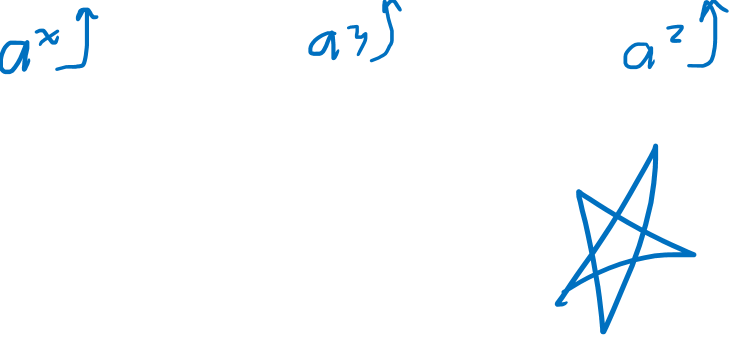 aˣ a³ a²